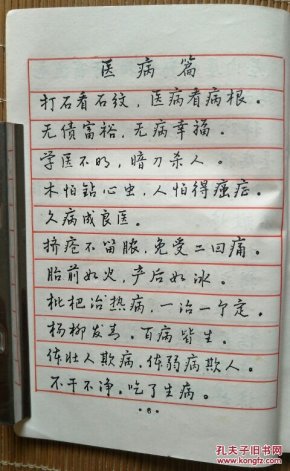 医病篇
打石看石纹，医病看病根。
无债富裕，无病幸福。
学医不明，暗刀杀人。
木怕钻心虫，人怕得癌症。
久病成良医。
挤疮不留脓，免受二回痛。
胎前如火，产后如冰。
枇杷治热病，一治一个定。
杨柳发青，百病皆生。
体壮人欺病，体弱病欺人。
不干不净，吃了生病。
·6·
孔夫子旧书网